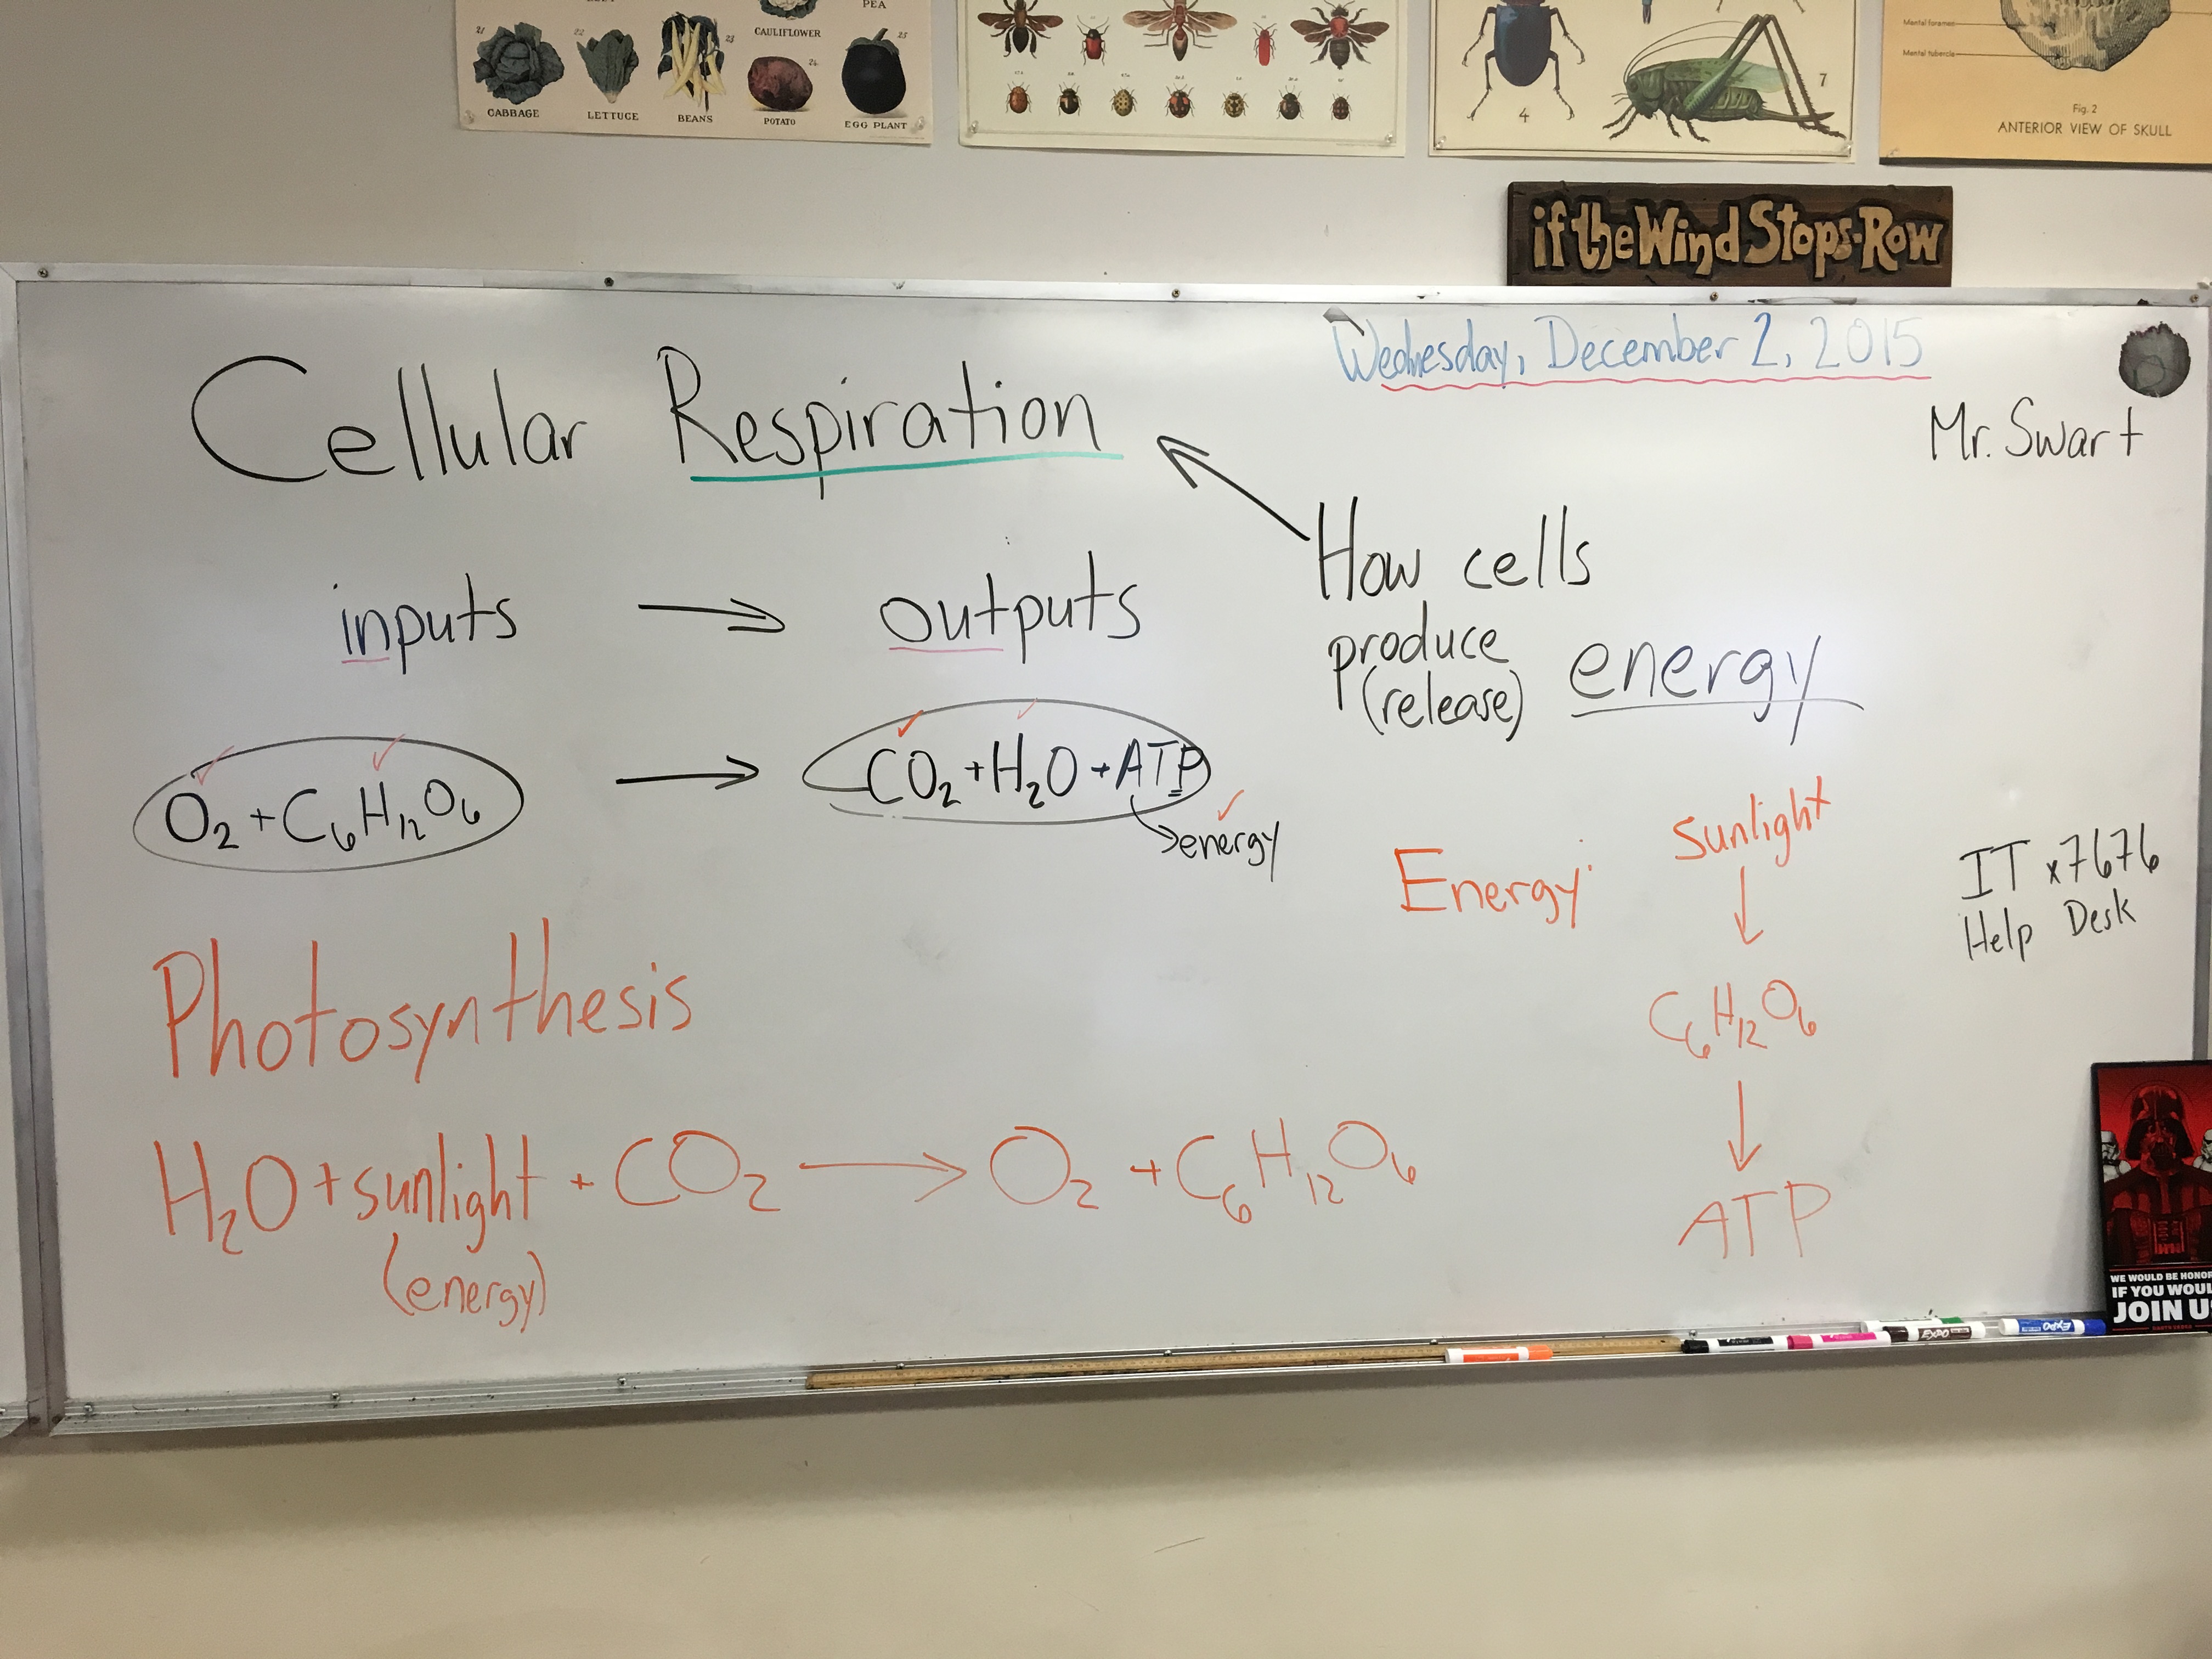 PEA
21
22
23
CAULIFLOWER
24
25
CABBAGE
LETTUCE
BEANS
POTATO
EGG PLANT
4
7
Mental foramen
Mental tubercle
Fig. 2
ANTERIOR VIEW OF SKULL
if the Wind Stops-Row
Wednesday, December 2, 2015
Mr. Swart
Cellular Respiration
How cells
produce
(release) energy
inputs → outputs
O₂ + C₆H₁₂O₆ → CO₂ + H₂O + ATP
→ energy
Energy:
Sunlight
↓
C₆H₁₂O₆
↓
ATP
IT x7676
Help Desk
Photosynthesis
H₂O + sunlight + CO₂ → O₂ + C₆H₁₂O₆
(energy)
WE WOULD BE HONOR
IF YOU WOUL
JOIN U
EXPO
EXPO